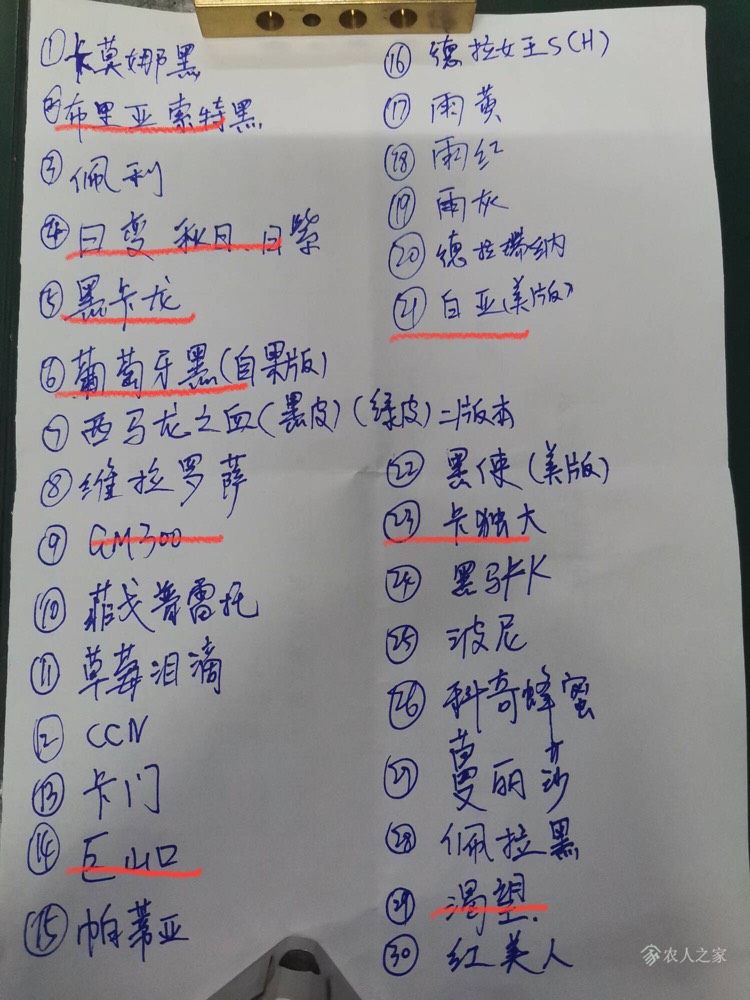 ①卡莫娜黑
②布里亚索特黑
③佩利
④日变 秋日、日紫
⑤黑卡龙
⑥葡萄牙黑(自果版)
⑦西马龙之血(黑皮)(绿皮)二版本
⑧维拉罗萨
⑨GM300
⑩菲戈普雷托
⑪草莓泪滴
⑫CCN
⑬卡门
⑭巨山口
⑮帕蒂亚
⑯德拉女王S(H)
⑰雨黄
⑱雨红
⑲雨灰
⑳德拉瑞纳
㉑白亚(美版)
㉒黑侠(美版)
㉓卡独大
㉔黑马KK
㉕波尼
㉖科奇蜂蜜
㉗蔓丽莎
㉘佩拉黑
㉙渴望.
㉚红美人
农人之家